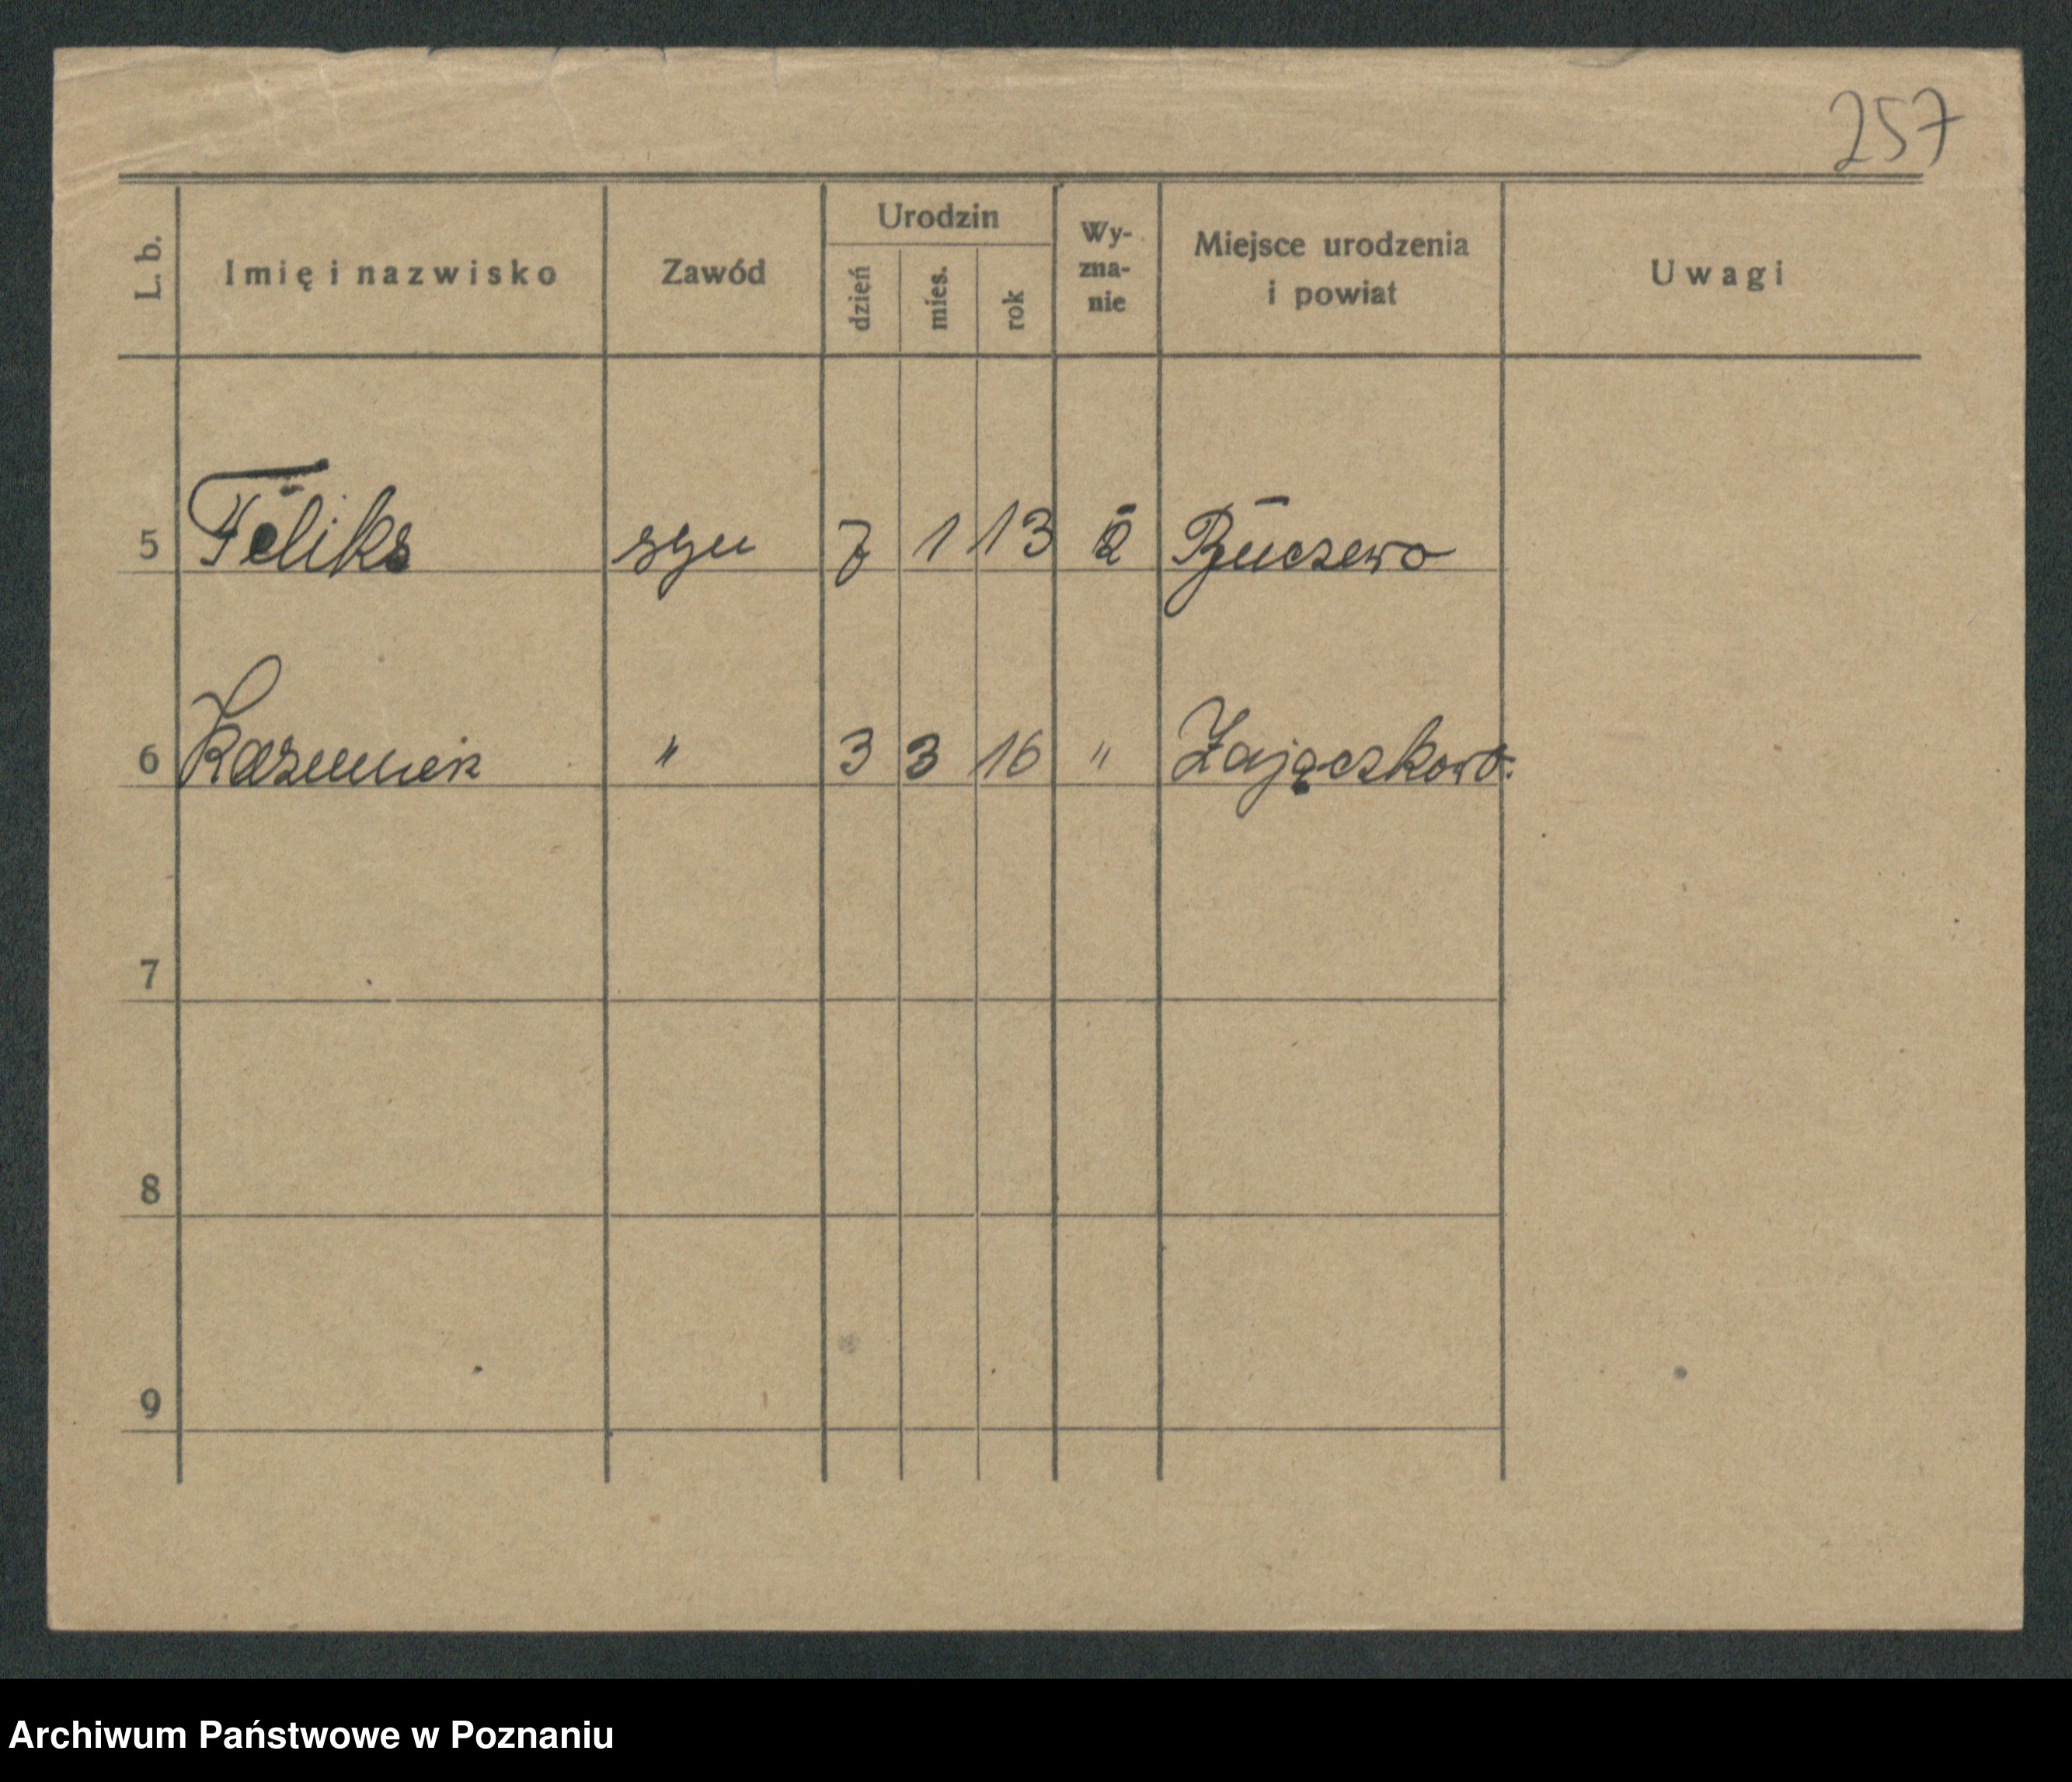 257
L. b. Imię i nazwisko Zawód Urodzin dzień mies. rok Wy-zna-nie Miejsce urodzenia i powiat Uwagi
5 Feliks syn 7 1 13
6 Kazimierz " 3 3 16 " Zajączkowo.
7
8
9
Archiwum Państwowe w Poznaniu